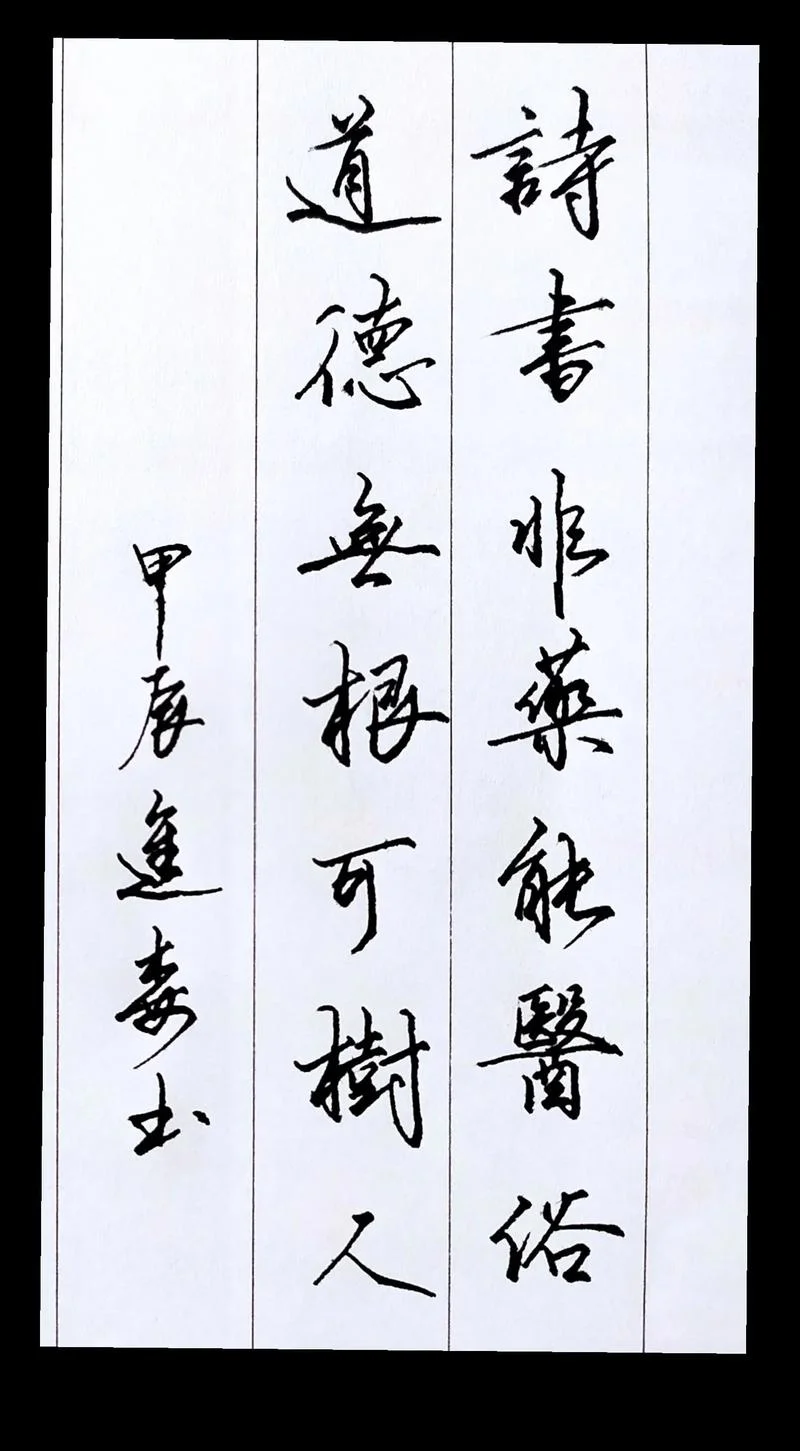 詩書非藥能醫俗
道德無根可樹人
甲辰進書